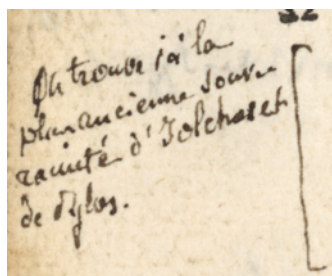 32
On trouve ici la
plus ancienne souve-
raineté d'Iolchos et
de Pylos.